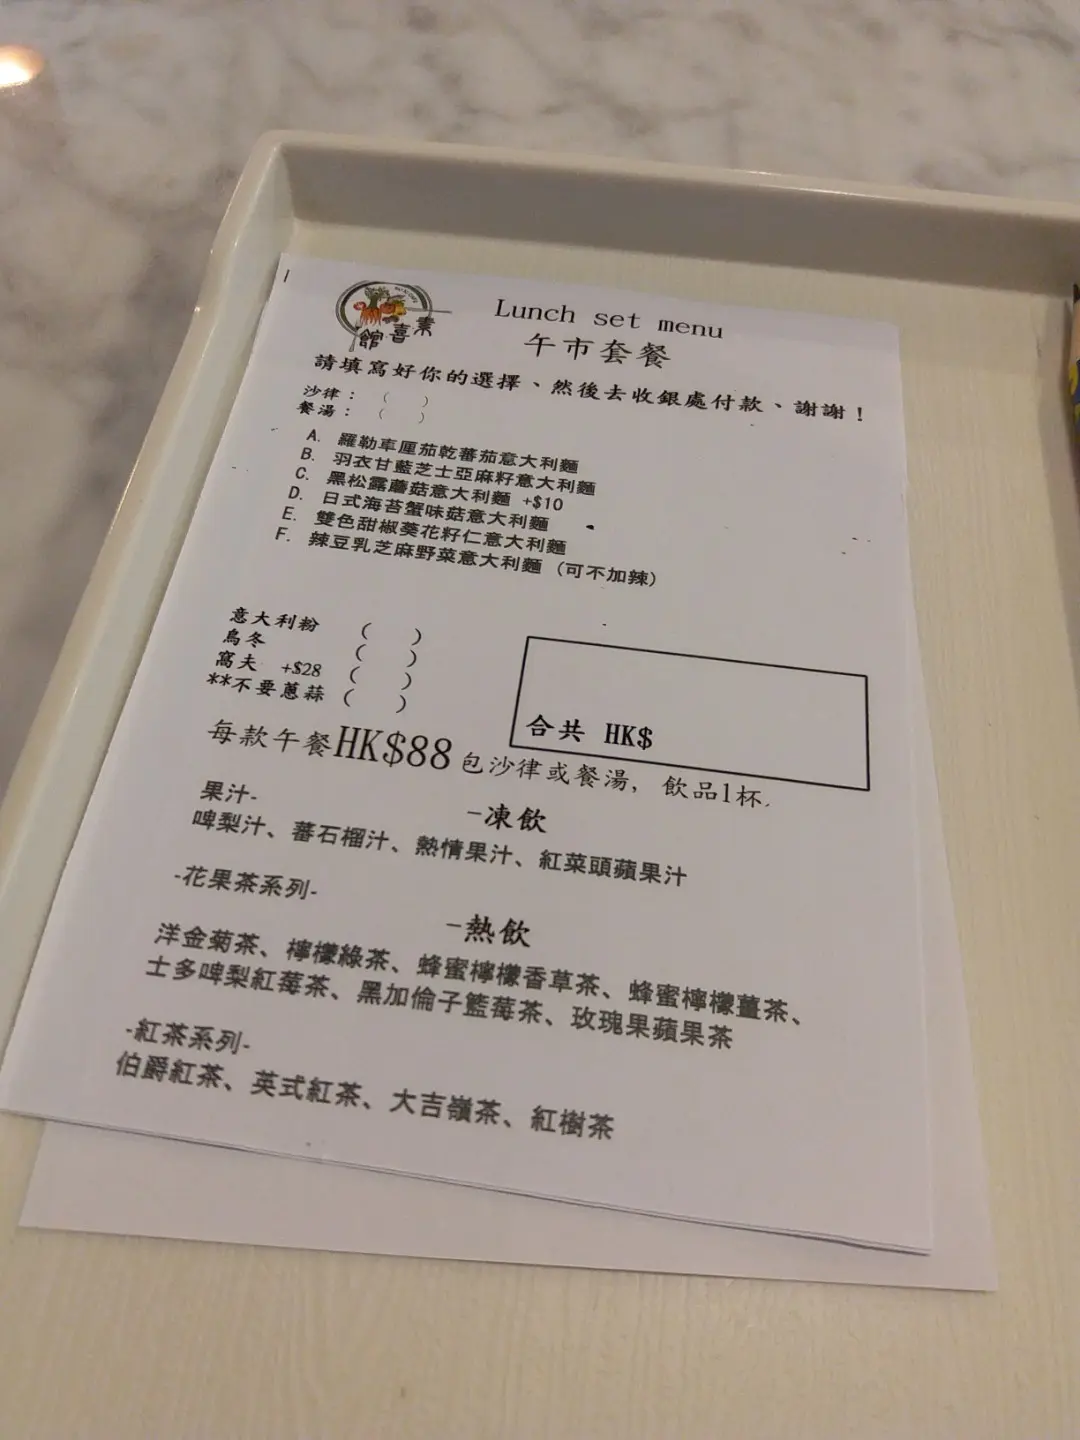 素喜館
Lunch set menu
午市套餐
請填寫好你的選擇、然後去收銀處付款、謝謝！
沙律：（ ）
餐湯：（ ）
A. 羅勒車厘茄乾蕃茄意大利麵
B. 羽衣甘藍芝士亞麻籽意大利麵
C. 黑松露蘑菇意大利麵 +$10
D. 日式海苔蟹味菇意大利麵
E. 雙色甜椒葵花籽仁意大利麵
F. 辣豆乳芝麻野菜意大利麵 (可不加辣)
意大利粉 ( )
烏冬 ( )
窩夫 +$28 ( )
**不要蔥蒜 ( )
合共 HK$
每款午餐HK$88包沙律或餐湯, 飲品1杯.
-凍飲
果汁-
啤梨汁、蕃石榴汁、熱情果汁、紅菜頭蘋果汁
-花果茶系列-
-熱飲
洋金菊茶、檸檬綠茶、蜂蜜檸檬香草茶、蜂蜜檸檬薑茶、
士多啤梨紅莓茶、黑加倫子籃莓茶、玫瑰果蘋果茶
-紅茶系列-
伯爵紅茶、英式紅茶、大吉嶺茶、紅樹茶